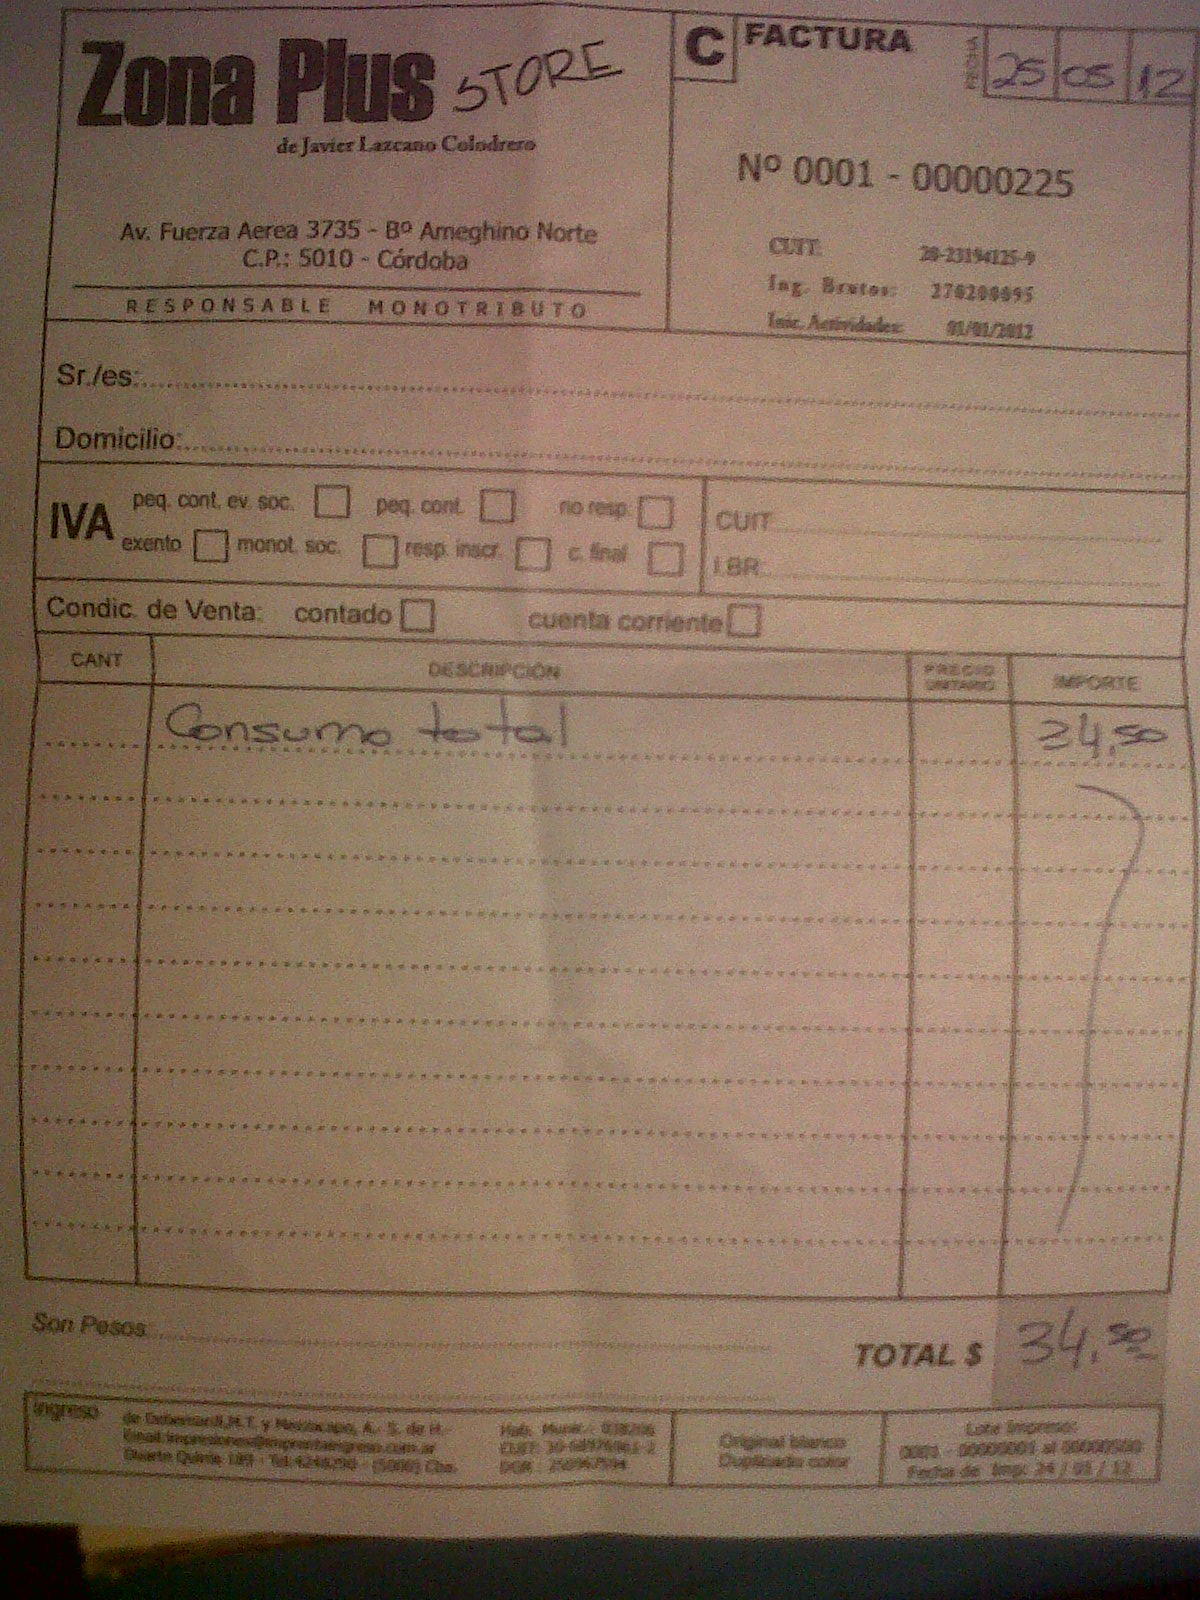 Zona Plus STORE
de Javier Lazcano Colodrero
Av. Fuerza Aerea 3735 - Bº Ameghino Norte
C.P.: 5010 - Córdoba
RESPONSABLE MONOTRIBUTO
C FACTURA
FECHA 25 05 12
Nº 0001 - 00000225
CUIT: 20-23194125-9
Ing. Brutos: 270200095
Inic. Actividades: 01/01/2012
Sr./es:
Domicilio:
IVA
peq. cont. ev. soc. peq. cont. no resp.
exento monot. soc. resp. inscr. c. final
CUIT
I.BR:
Condic. de Venta: contado cuenta corriente
CANT DESCRIPCIÓN PRECIO UNITARIO IMPORTE
Consumo total 34,50
Son Pesos:
TOTAL $ 34,50
Ingreso
Email:impresiones@imprentaingreso.com.ar
Duarte Quirós
(5000) Cba.
Original blanco
Duplicado color
Lote Impreso:
0001 - 00000001 al 00000500
Fecha de Imp: 24 / 01 / 12